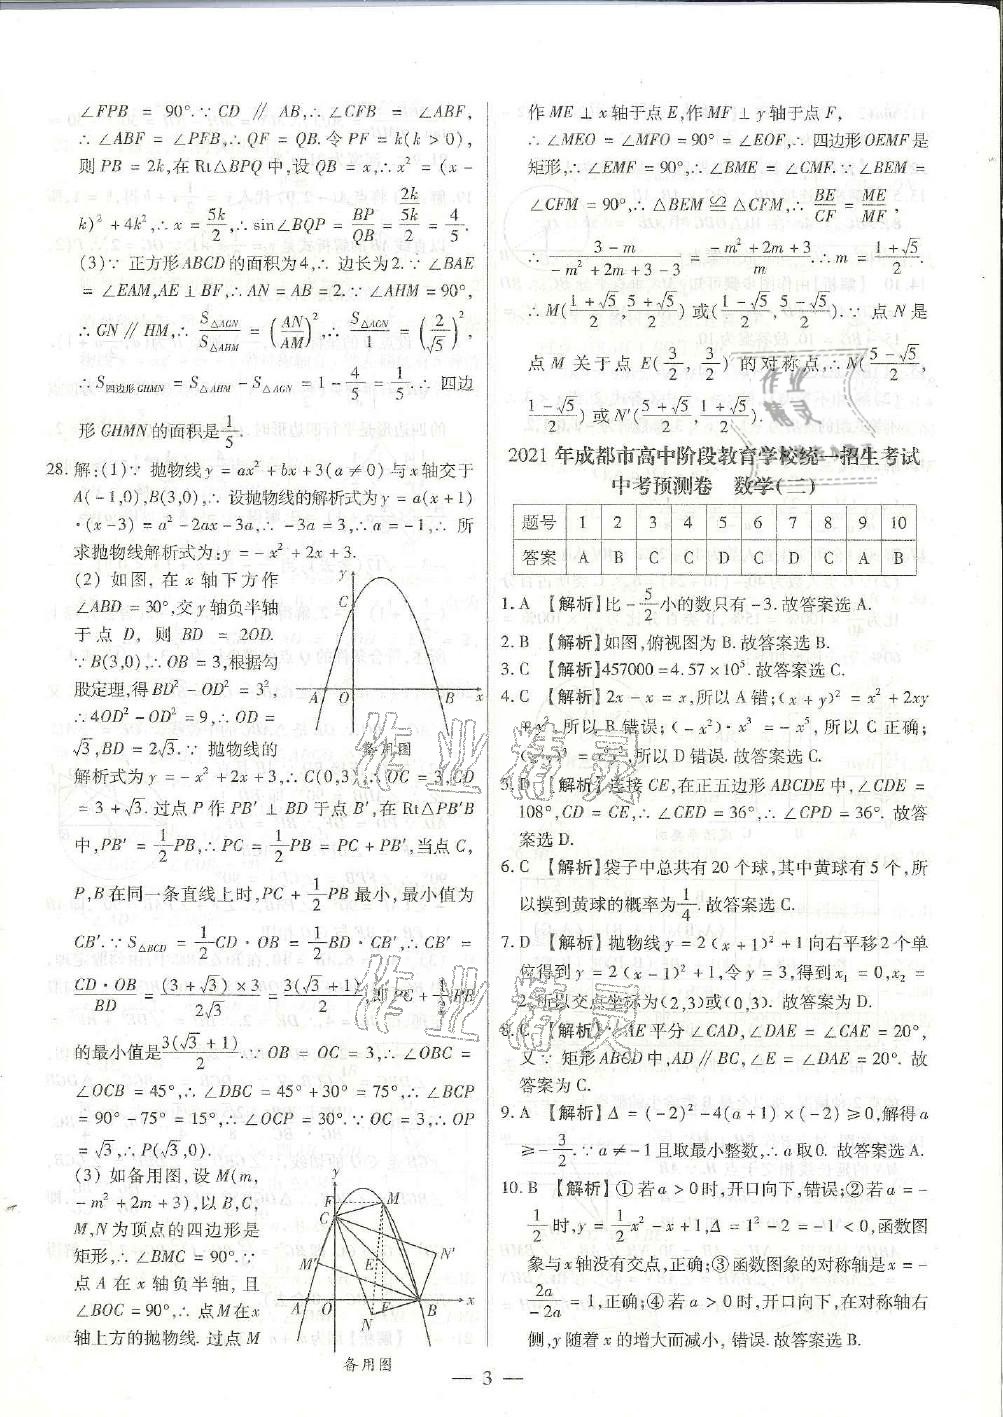 ∠FPB = 90°.∵ CD ∥ AB,∴ ∠CFB = ∠ABF,
∴ ∠ABF = ∠PFB,∴ QF = QB.令 PF = k(k > 0),
则 PB = 2k,在 Rt△BPQ 中,设 QB = x,∴ x² = (x -
k)² + 4k²,∴ x = 5k/2,∴ sin∠BQP = BP/QB = 2k/(5k/2) = 4/5.
(3)∵ 正方形 ABCD 的面积为 4,∴ 边长为 2.∵ ∠BAE
= ∠EAM,AE ⊥ BF,∴ AN = AB = 2.∵ ∠AHM = 90°,
∴ GN ∥ HM,∴ S△AGN/S△AHM = (AN/AM)²,∴ S△AGN/1 = (2/√5)²,
∴ S四边形GHMN = S△AHM - S△AGN = 1 - 4/5 = 1/5.∴ 四边
形 GHMN 的面积是 1/5.
28. 解:(1)∵ 抛物线 y = ax² + bx + 3(a ≠ 0) 与 x 轴交于
A(-1,0),B(3,0),∴ 设抛物线的解析式为 y = a(x + 1)
·(x - 3) = a² - 2ax - 3a,∴ -3a = 3,∴ a = -1,∴ 所
求抛物线解析式为:y = - x² + 2x + 3.
(2) 如图, 在 x 轴下方作
∠ABD = 30°,交 y 轴负半轴
于点 D, 则 BD = 2OD.
∵ B(3,0),∴ OB = 3,根据勾
股定理,得 BD² - OD² = 3²,
∴ 4OD² - OD² = 9,∴ OD =
√3,BD = 2√3.∵ 抛物线的
y
C
A
O
B
x
备用图
解析式为 y = - x² + 2x + 3,∴ C(0,3),∴ OC = 3,CD
= 3 + √3. 过点 P 作 PB′ ⊥ BD 于点 B′,在 Rt△PB′B
中,PB′ = 1/2 PB,∴ PC + 1/2 PB = PC + PB′,当点 C,
P,B 在同一条直线上时,PC + 1/2 PB 最小,最小值为
CB′.∵ S△BCD = 1/2 CD · OB = 1/2 BD · CB′,∴ CB′ =
CD · OB/BD = (3 + √3) × 3/2√3 = 3(√3 + 1)/2,即 PC + 1/2 PB
的最小值是 3(√3 + 1)/2.∵ OB = OC = 3,∴ ∠OBC =
∠OCB = 45°,∴ ∠DBC = 45° + 30° = 75°,∴ ∠BCP
= 90° - 75° = 15°,∴ ∠OCP = 30°.∵ OC = 3,∴ OP
= √3,∴ P(√3,0).
(3) 如备用图, 设 M(m,
- m² + 2m + 3),以 B,C,
M,N 为顶点的四边形是
矩形,∴ ∠BMC = 90°.∵
点 A 在 x 轴负半轴, 且
∠BOC = 90°,∴ 点 M 在 x
轴上方的抛物线. 过点 M
y
F
M
C
N′
M′
E
A
O
F
B
x
N
备用图
作 ME ⊥ x 轴于点 E,作 MF ⊥ y 轴于点 F,
∴ ∠MEO = ∠MFO = 90° = ∠EOF,∴ 四边形 OEMF 是
矩形,∴ ∠EMF = 90°,∴ ∠BME = ∠CMF.∵ ∠BEM =
∠CFM = 90°,∴ △BEM ≌ △CFM,∴ BE/CF = ME/MF,
∴ (3 - m)/(- m² + 2m + 3 - 3) = (- m² + 2m + 3)/m.∴ m = (1 + √5)/2.
∴ M((1 + √5)/2, (5 + √5)/2) 或 ((1 - √5)/2, (5 - √5)/2).∵ 点 N 是
点 M 关于点 E(3/2, 3/2) 的对称点,∴ N((5 - √5)/2,
(1 - √5)/2) 或 N′((5 + √5)/2, (1 + √5)/2).
2021 年成都市高中阶段教育学校统一招生考试
中考预测卷 数学(二)
题号 1 2 3 4 5 6 7 8 9 10
答案 A B C C D C D C A B
1. A 【解析】比 - 5/2 小的数只有 -3. 故答案选 A.
2. B 【解析】如图,俯视图为 B. 故答案选 B.
3. C 【解析】457000 = 4.57 × 10⁵. 故答案选 C.
4. C 【解析】2x - x = x,所以 A 错;(x + y)² = x² + 2xy
+ x², 所以 B 错误;(- x²) · x³ = - x⁵, 所以 C 正确;
,所以 D 错误. 故答案选 C.
5. D 【解析】连接 CE,在正五边形 ABCDE 中,∠CDE =
108°,CD = CE,∴ ∠CED = 36°,∴ ∠CPD = 36°. 故答
案选 D.
6. C 【解析】袋子中总共有 20 个球,其中黄球有 5 个,所
以摸到黄球的概率为 1/4. 故答案选 C.
7. D 【解析】抛物线 y = 2(x + 1)² + 1 向右平移 2 个单
位得到 y = 2(x - 1)² + 1,令 y = 3,得到 x₁ = 0,x₂ =
2,所以交点坐标为(2,3)或(0,3). 故答案选 D.
8. C 【解析】∵ AE 平分 ∠CAD,∠DAE = ∠CAE = 20°,
又∵ 矩形 ABCD 中,AD ∥ BC,∠E = ∠DAE = 20°. 故
答案为 C.
9. A 【解析】Δ = (-2)² - 4(a + 1) × (-2) ≥ 0,解得 a
≥ - 3/2.∵ a ≠ -1 且取最小整数,∴ a 取 0. 故答案选 A.
10. B 【解析】① 若 a > 0 时,开口向下,错误;② 若 a = -
1/2 时,y = 1/2 x² - x + 1,Δ = 1² - 2 = -1 < 0,函数图
象与 x 轴没有交点,正确;③ 函数图象的对称轴是 x = -
2a/-2a = 1,正确;④ 若 a > 0 时,开口向下,在对称轴右
侧,y 随着 x 的增大而减小, 错误. 故答案选 B.
— 3 —
作业精灵
作业精灵
作业
精灵